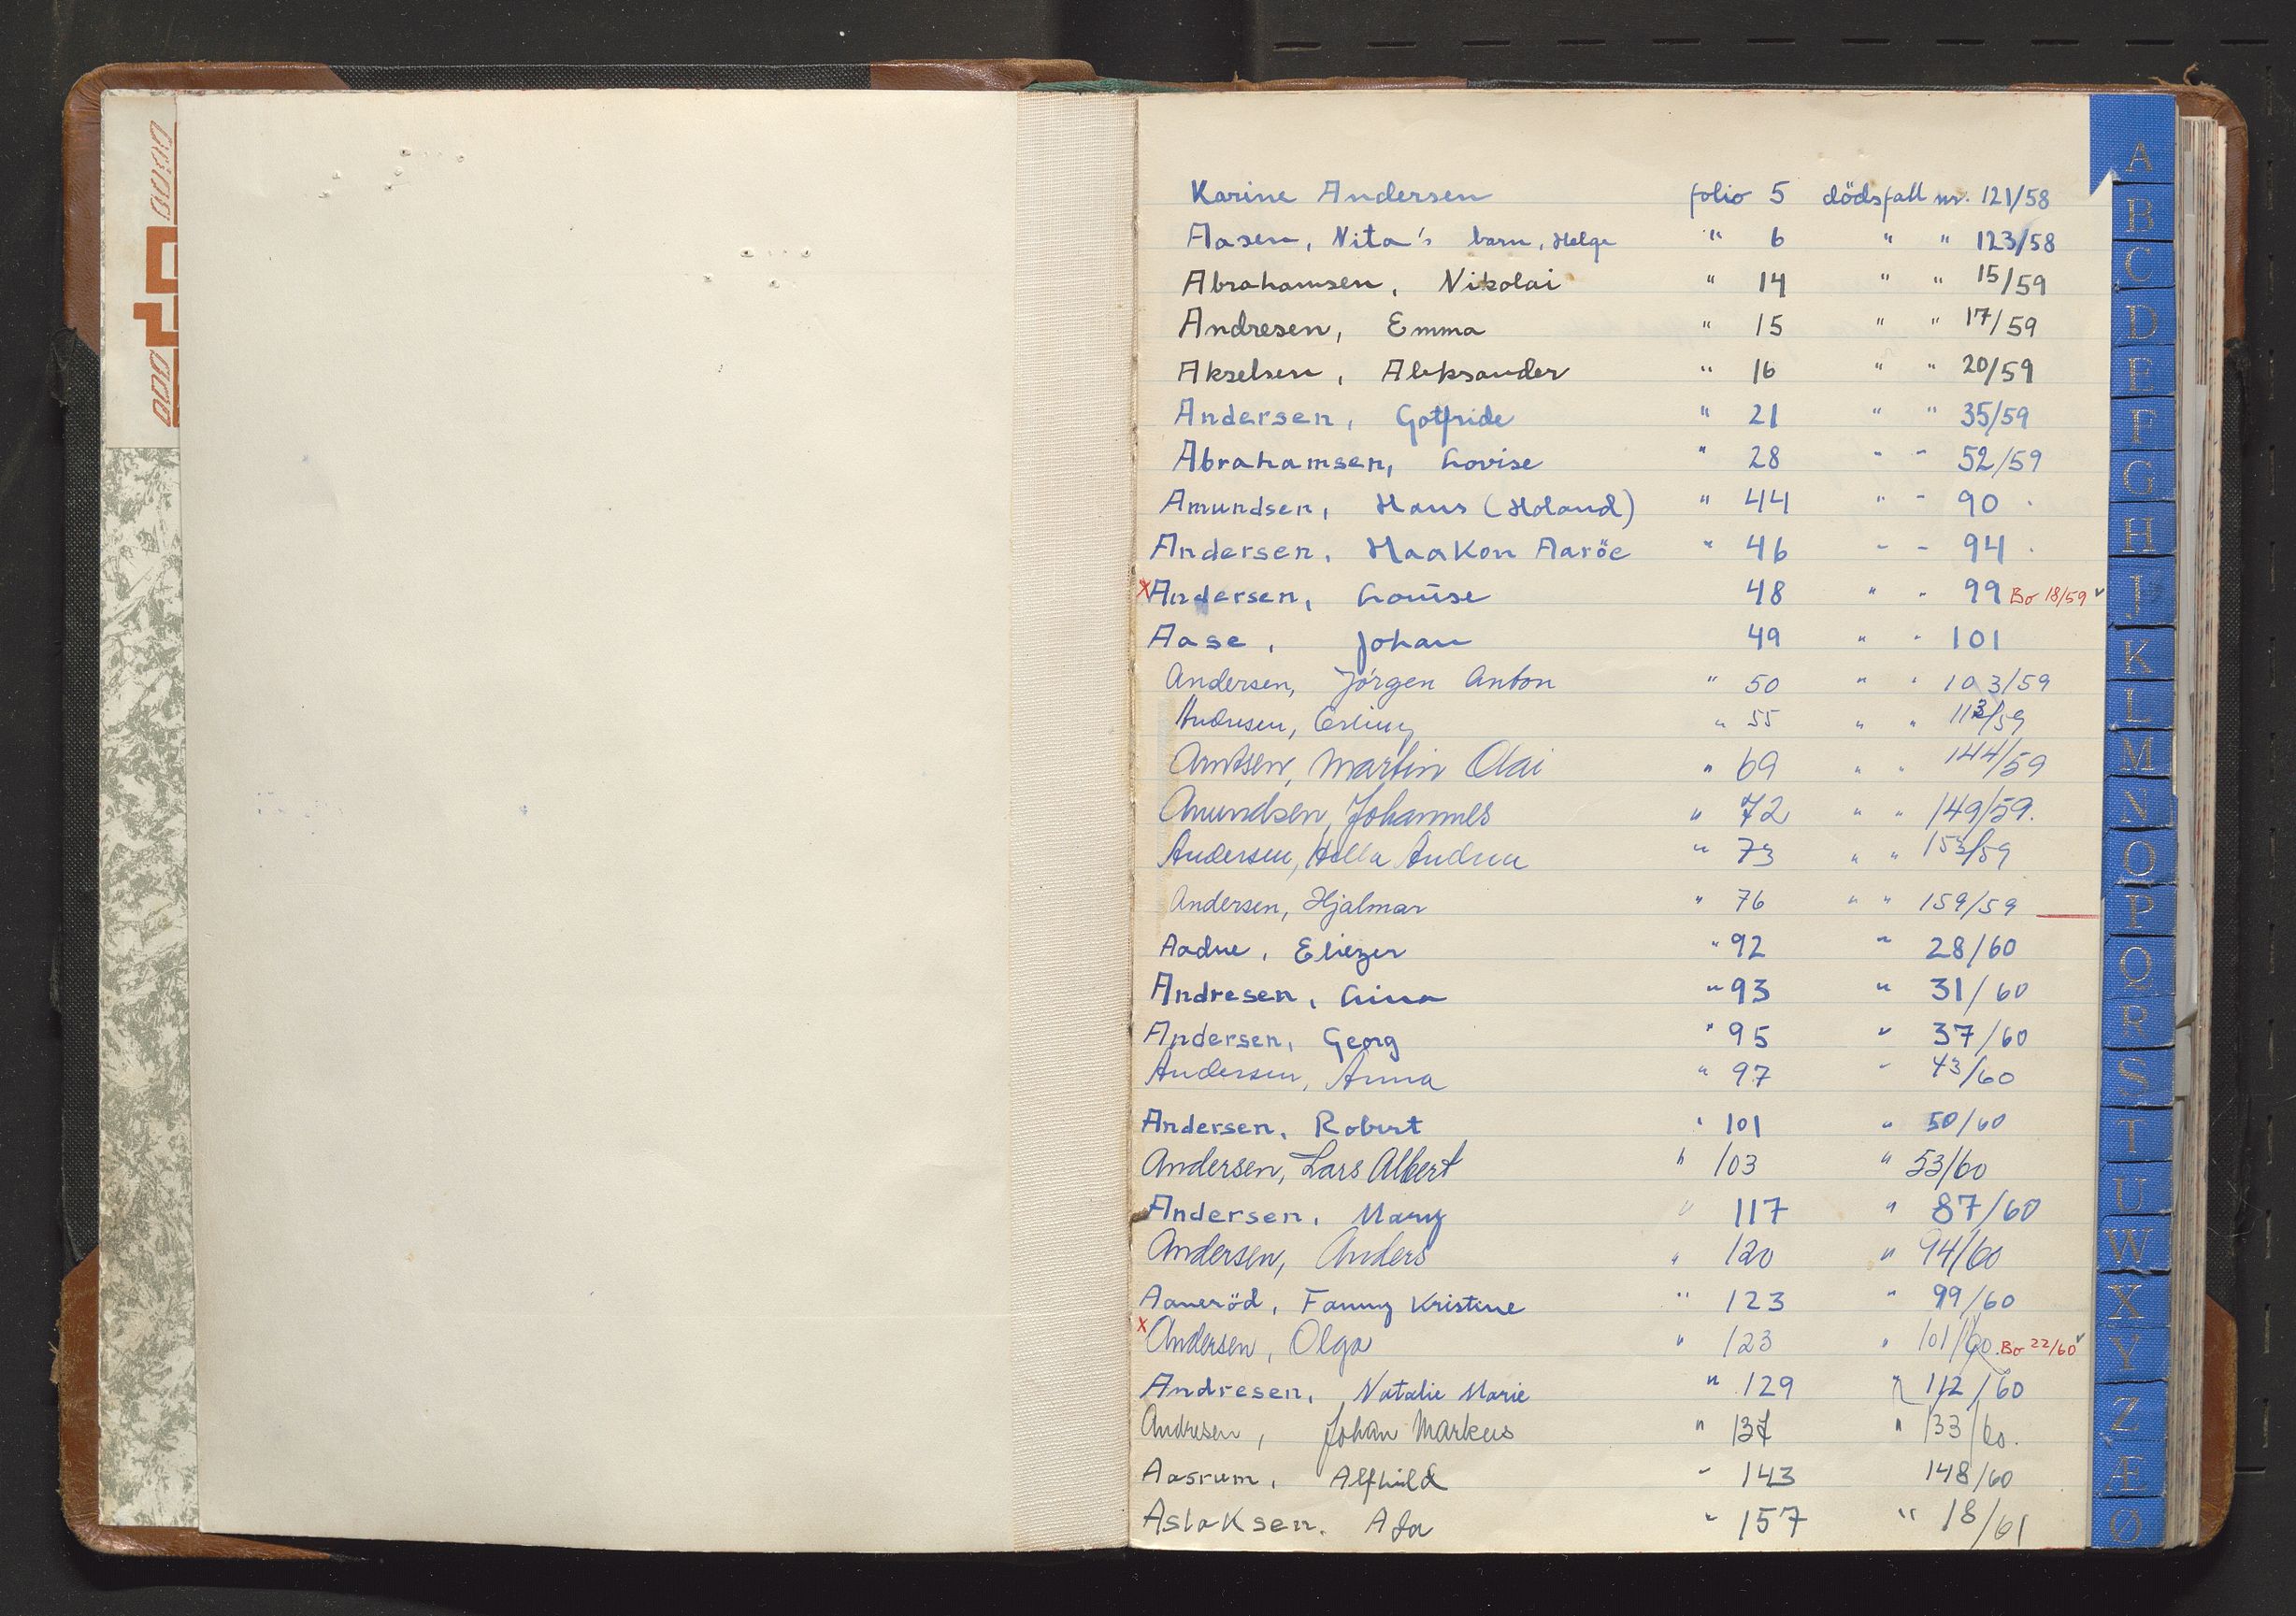 Karine Andersen folio 5 dödsfall nr. 121/58
Aasen, Nita's barn, Helge " 6 " " 123/58
Abrahamsen, Nikolai " 14 " " 15/59
Andresen, Emma " 15 " " 17/59
Akselsen, Aleksander " 16 " " 20/59
Andersen, Gotfride " 21 " " 35/59
Abrahamsen, Lovise " 28 " " 52/59
Amundsen, Hans (Holand) " 44 " " 90 "
Andersen, Haakon Aaröe " 46 " " 94 "
x Andersen, Louise 48 " " 99 Bo 18/59 v
Aase, Johan 49 " " 101
Andersen, Jörgen Anton " 50 " " 103/59
Andresen, Erling " 55 " " 113/59
Arntsen, Martin Olai " 69 " " 144/59
Amundsen, Johannes " 72 " " 149/59.
Andersen, Hella Andrea " 73 " " 153/59
Andersen, Hjalmar " 76 " " 159/59
Aadne, Eliezer " 92 " 28/60
Andresen, Lina " 93 " 31/60
Andersen, Georg " 95 " 37/60
Andersen, Anna " 97 " 43/60
Andersen, Robert " 101 " 50/60
Andersen, Lars Albert " 103 " 53/60
Andersen, Mary " 117 " 87/60
Andersen, Anders " 120 " 94/60
Aaneröd, Fanny Kristine " 123 " 99/60
x Andersen, Olga " 123 " 101/60. Bo 22/60 v
Andresen, Natalie Marie " 129 " 112/60
Andresen, Johan Markus " 137 " 133/60.
Aasrum, Alfhild " 143 148/60
Aslaksen, Ada " 157 " 18/61
A
B
C
D
E
F
G
H
J
K
L
M
N
O
P
Q
R
S
T
U
W
X
Y
Z
Æ
Ø